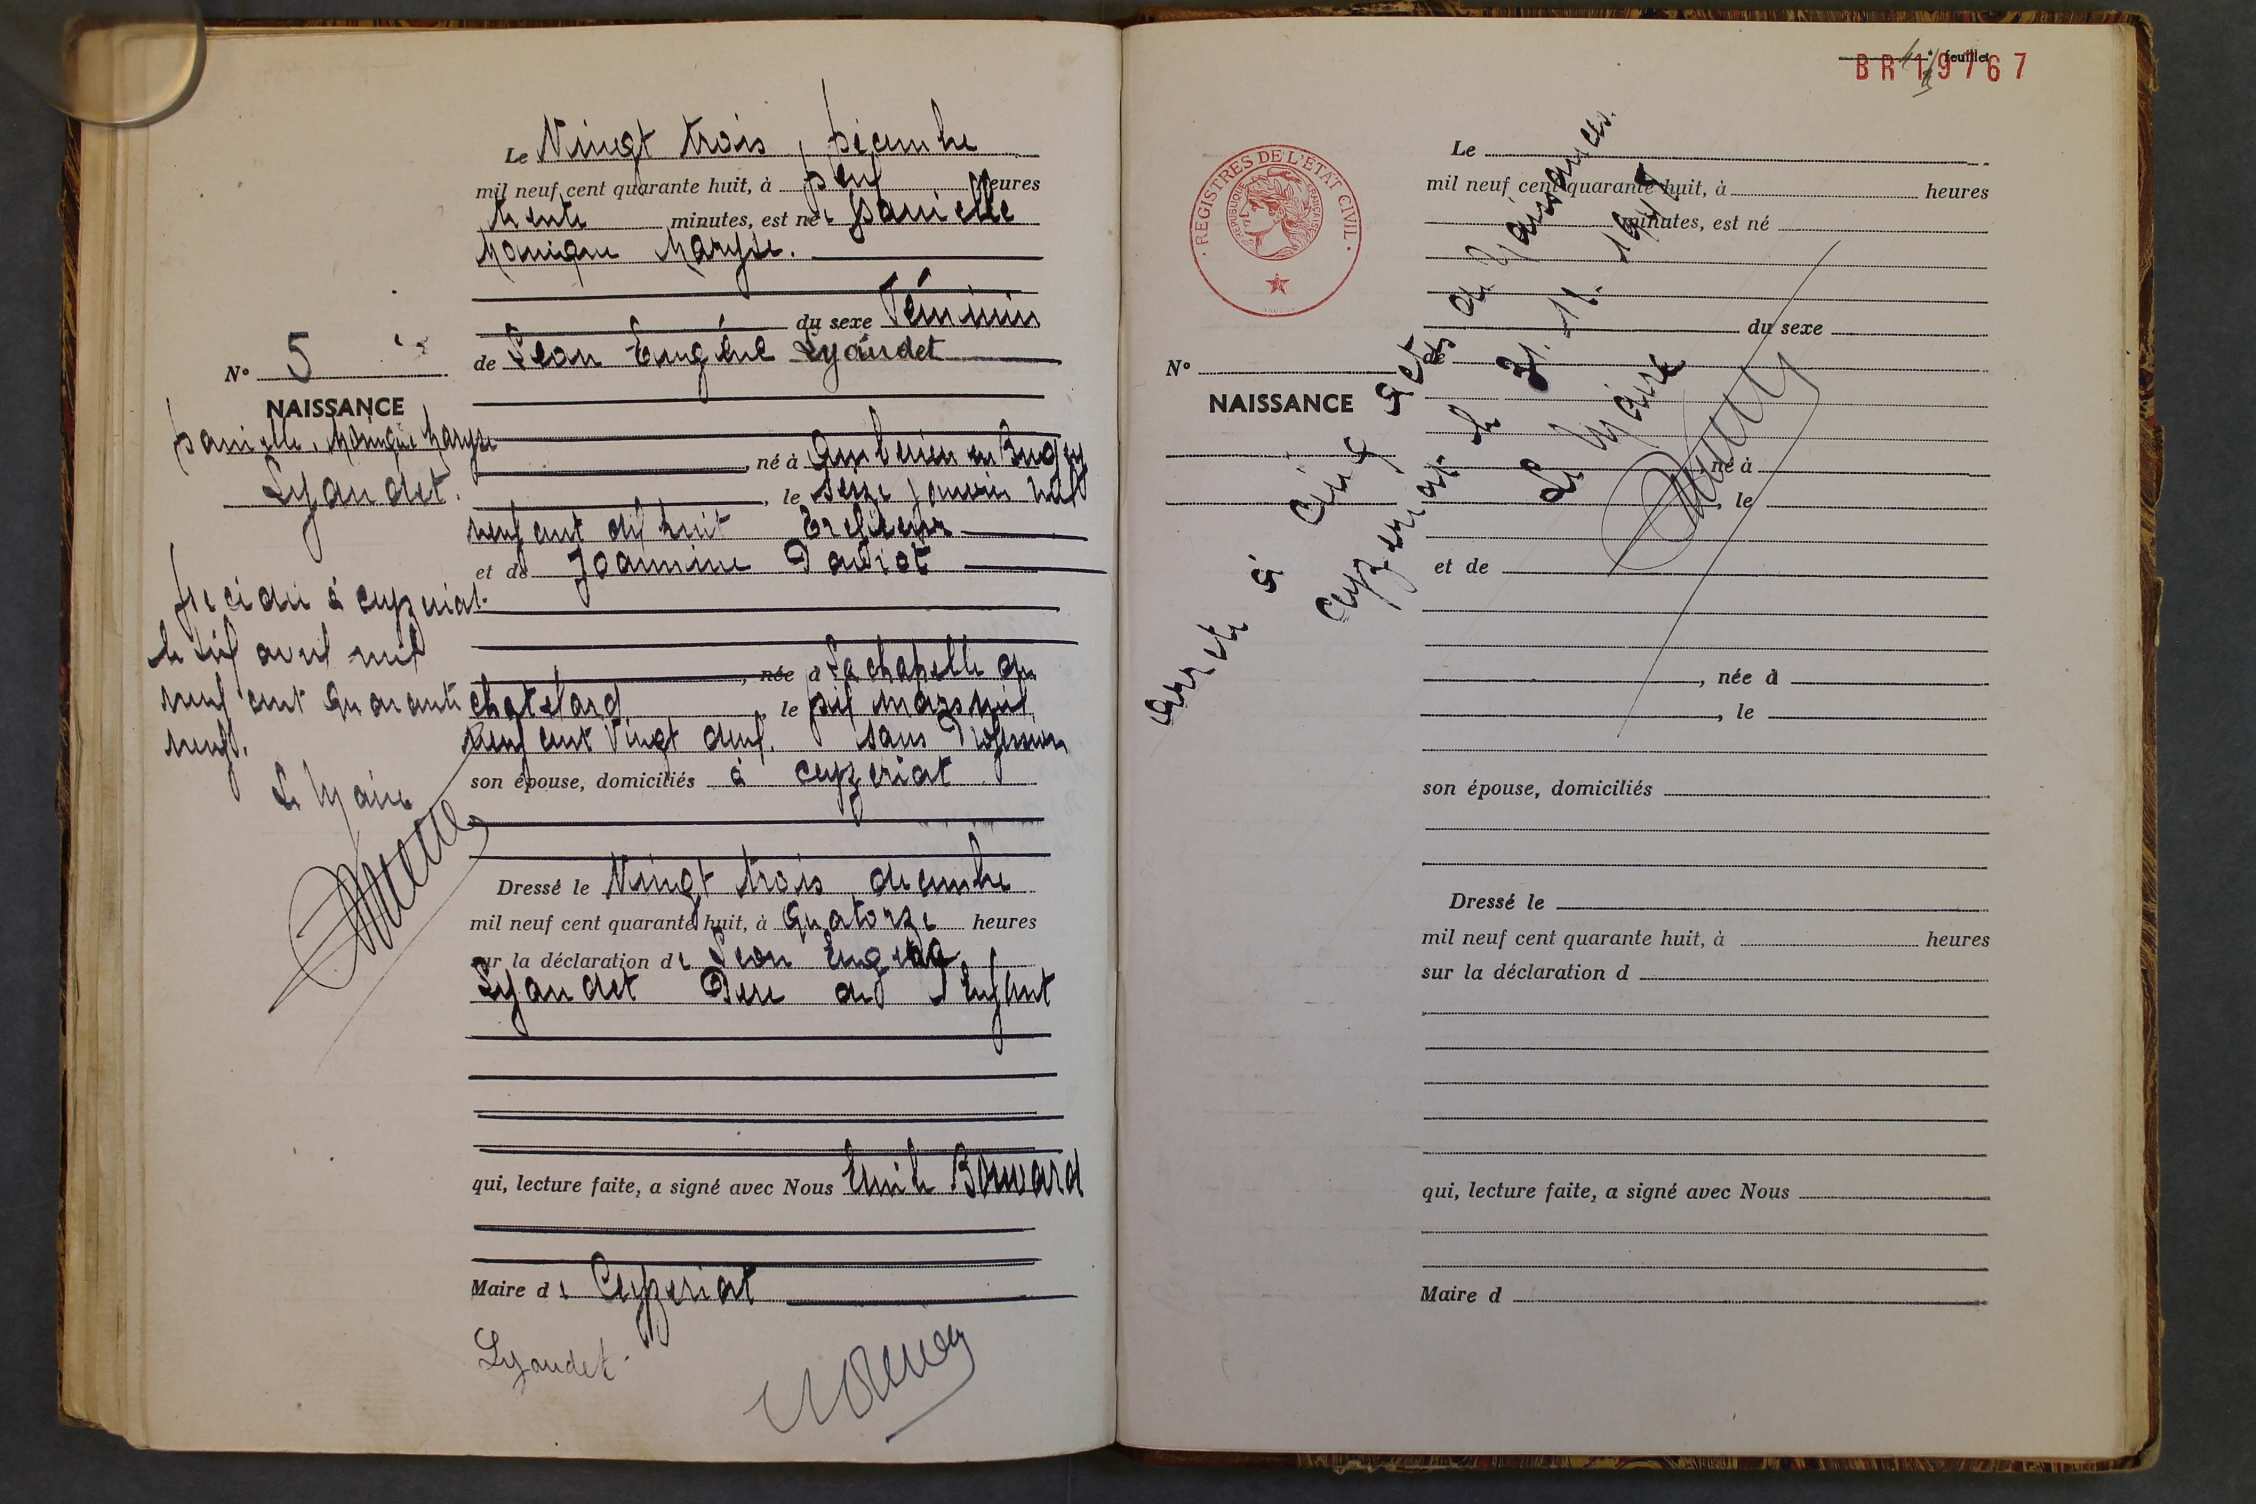 Le Vingt trois Décembre
mil neuf cent quarante huit, à neuf heures
trente minutes, est née Danielle
Monique Maryse.
du sexe Féminin
de Jean Eugène Lyaudet
N° 5
NAISSANCE
Danielle, Monique Maryse
Lyaudet.
, né à Ambérieu en Bugey
, le seize janvier mil
neuf cent dix huit
et de Joannine
Décédée à Ceyzeriat
le dix avril mil
neuf cent quarante
neuf.
Le Maire
, née à La chapelle du
chatelard, le dix mars mil
neuf cent Vingt deux. sans Profession
son épouse, domiciliés à Ceyzeriat
Dressé le Vingt trois décembre
mil neuf cent quarante huit, à Quatorze heures
sur la déclaration de Jean Eugène
Lyaudet Père de l'Enfant
qui, lecture faite, a signé avec Nous Emile
Maire de Ceyzeriat
Lyaudet
feuillet
BR 19767
REGISTRES DE L'ÉTAT CIVIL
RÉPUBLIQUE FRANÇAISE
Le
mil neuf cent quarante huit, à heures
minutes, est né
du sexe
de
N°
NAISSANCE
, né à
, le
et de
, née à
, le
son épouse, domiciliés
Dressé le
mil neuf cent quarante huit, à heures
sur la déclaration d
qui, lecture faite, a signé avec Nous
Maire d
Arrêté à Cinq actes de Naissances.
Ceyzeriat le 31. 12. 1948
Le Maire